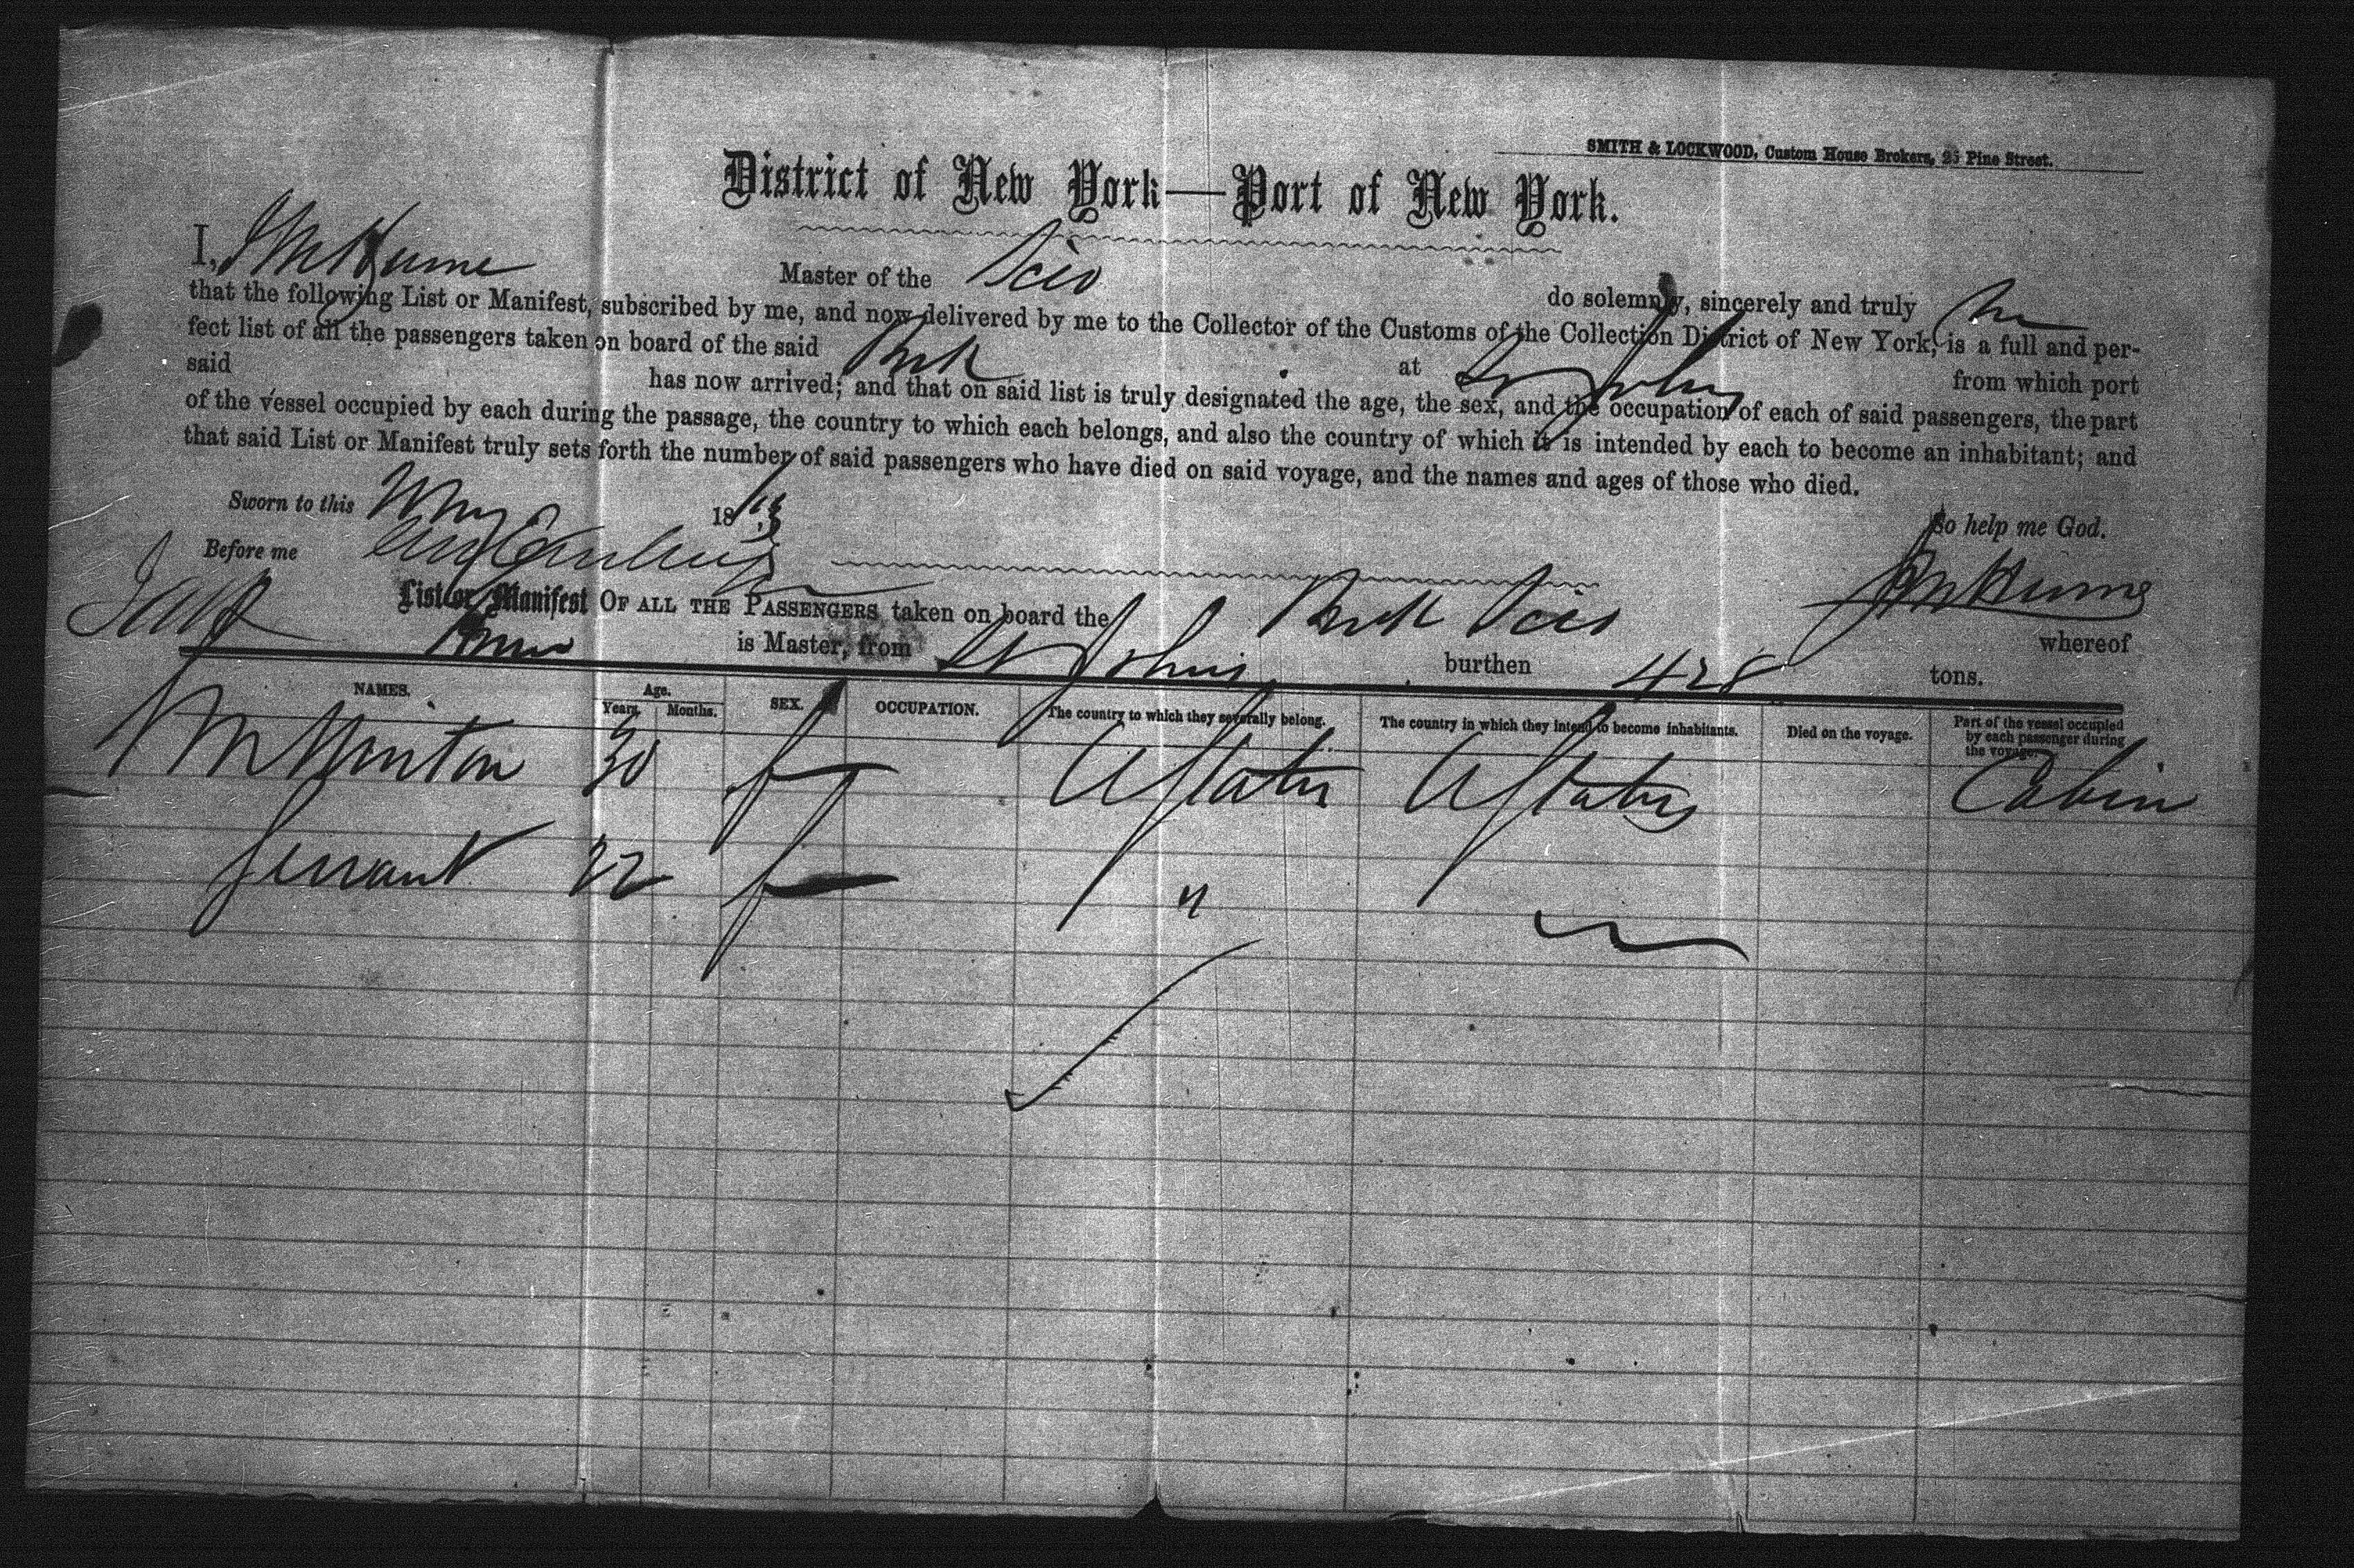 SMITH & LOCKWOOD, Custom House Brokers, 25 Pine Street.
District of New York—Port of New York.
I, Master of the Scio do solemnly, sincerely and truly
that the following List or Manifest, subscribed by me, and now delivered by me to the Collector of the Customs of the Collection District of New York, is a full and per-
fect list of all the passengers taken on board of the said at St Johns from which port
said has now arrived; and that on said list is truly designated the age, the sex, and the occupation of each of said passengers, the part
of the vessel occupied by each during the passage, the country to which each belongs, and also the country of which it is intended by each to become an inhabitant; and
that said List or Manifest truly sets forth the number of said passengers who have died on said voyage, and the names and ages of those who died.
Sworn to this 18 So help me God.
Before me
List or Manifest OF ALL THE PASSENGERS taken on board the Scio whereof
is Master, from St Johns burthen 428 tons.
NAMES. Age. Years. Months. SEX. OCCUPATION. The country to which they severally belong. The country in which they intend to become inhabitants. Died on the voyage. Part of the vessel occupied by each passenger during the voyage.
30 f U States U States Cabin
Servant 22 f "